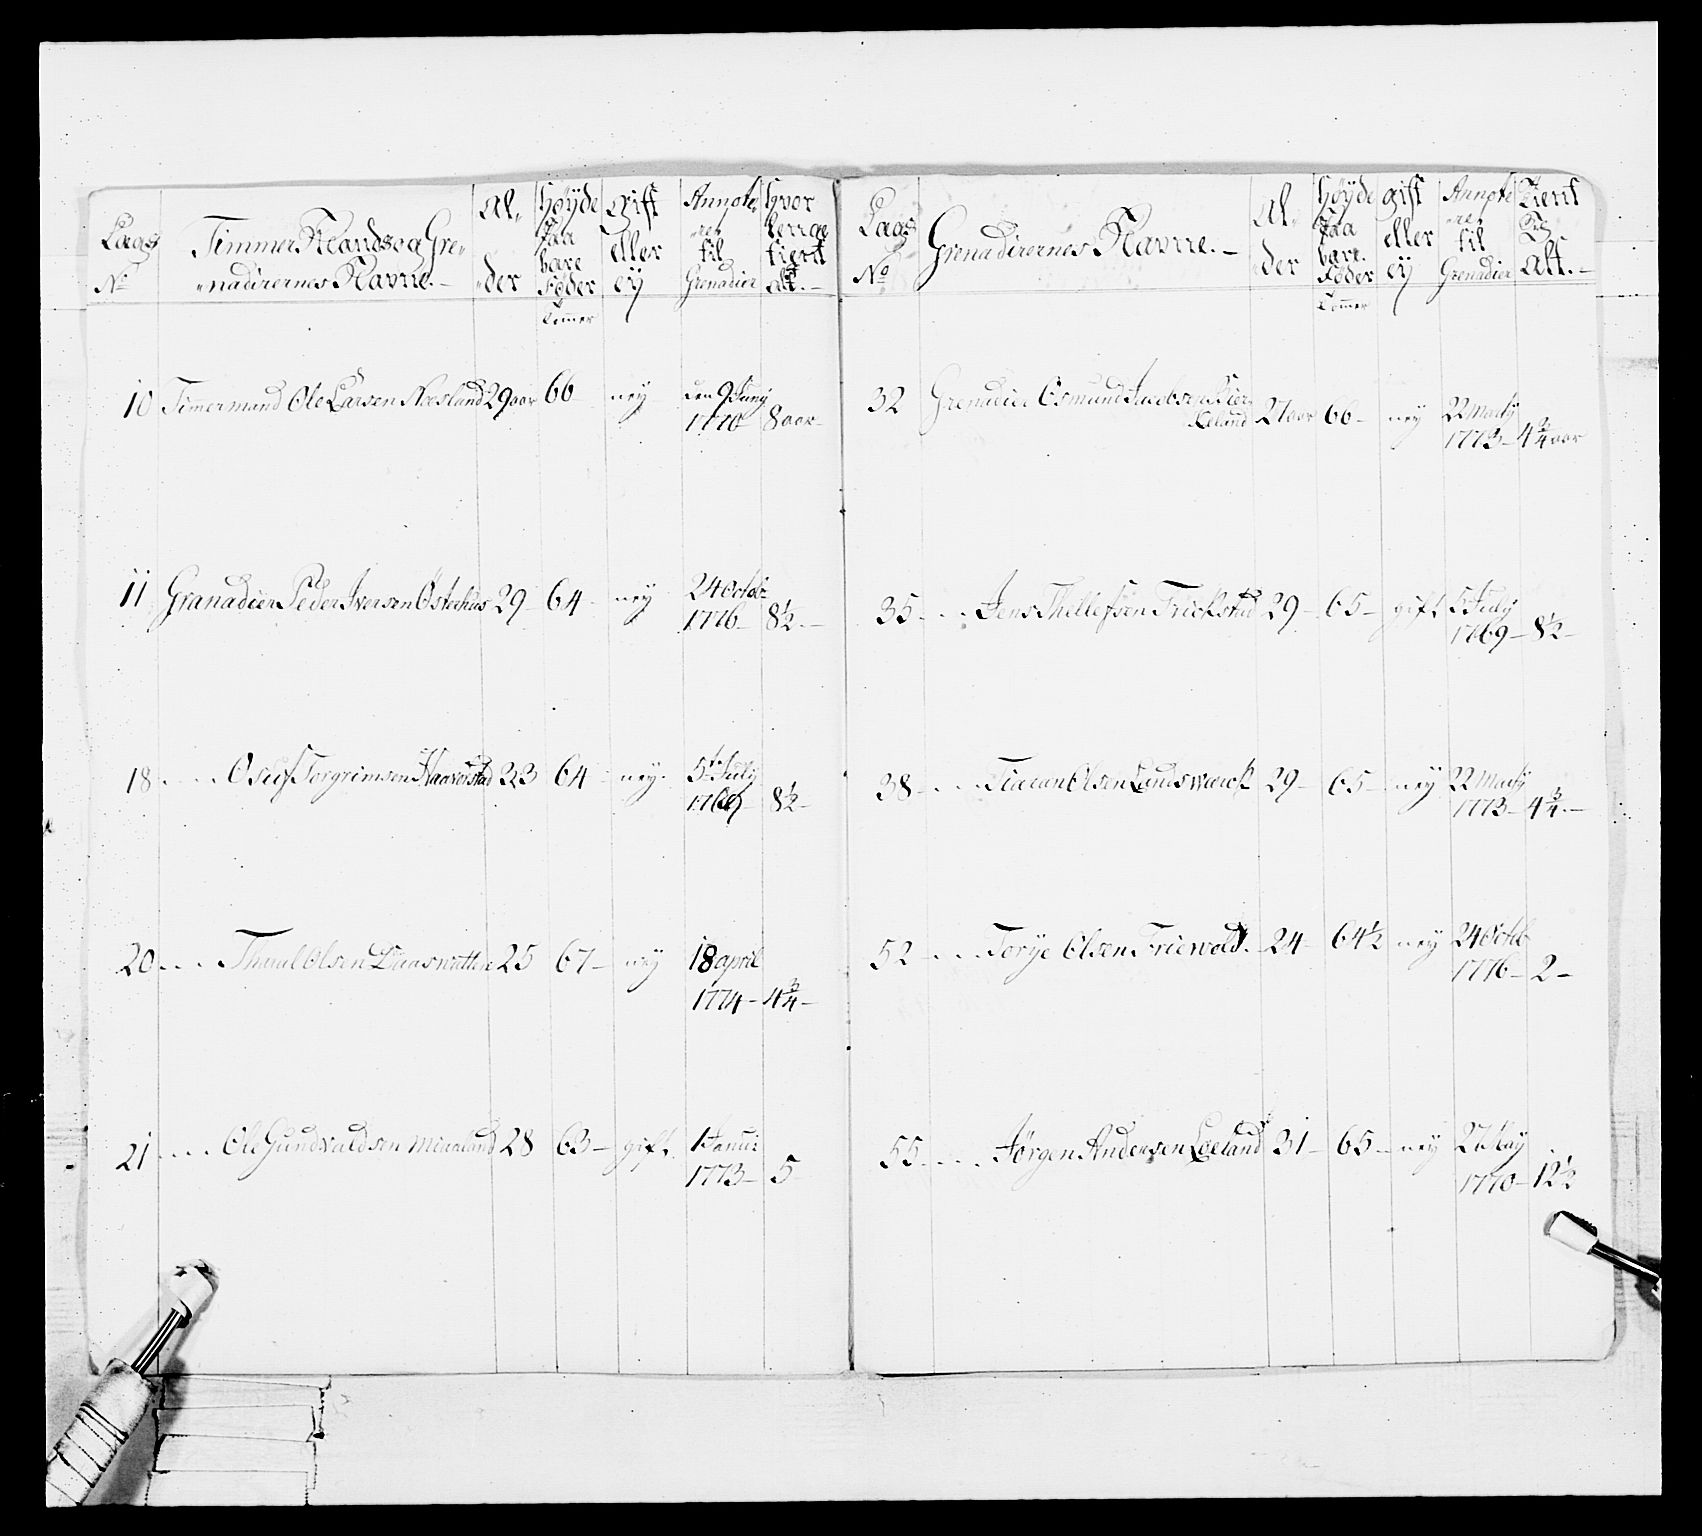 Laas No | Timmer Mands og Gre-nadirernes Navne.- | Al-der | Høyde Paa bare Føder Tommer | gift eller ey | Annoteret til Grenadier | hvor lenge tient alt.-
10 | Timermand Ole Larsen Næsland | 29 aar | 66 | ney | den 9 Juny 1770 | 8 aar-
11 | Granadier Peder Iversen Østerhus | 29 | 64 | ney | 24 octobr 1776 | 8½.-
18 | Osuf Torgrimsen Haaverstad | 23 | 64 | ney. | 5te July 1769 | 8½-
20 | Olsen | 25 | 67- | ney | 18 april 1774- | 4¾-
21 | Ole Gundvaldsen | 28 | 63- | gift | 1 Janui 1773- | 5
Laas No | Grenadirernes Navne.- | Al-der | Høyde Paa bare Føder Tommer | gift eller ey | Annoteret til Grenadier | Tient Alt.-
32 | Grenadier Osmund Jacobsen | 27 aar | 66- | ney | 22 Marty 1773- | 4¾ aar
35 | Jens Thellefsen Trickstad | 29- | 65- | gift | 5 July 1769- | 8½-
38 | Olsen Landsverck | 29- | 65- | ney | 22 Marty 1773- | 4¾.-
52 | Torje Olsen Friewold. | 24- | 64½ | ney | 24 Octob 1776- | 2-
55 | Jørgen Andersen Løeland | 31- | 65- | ney | 27 May 1770- | 12½